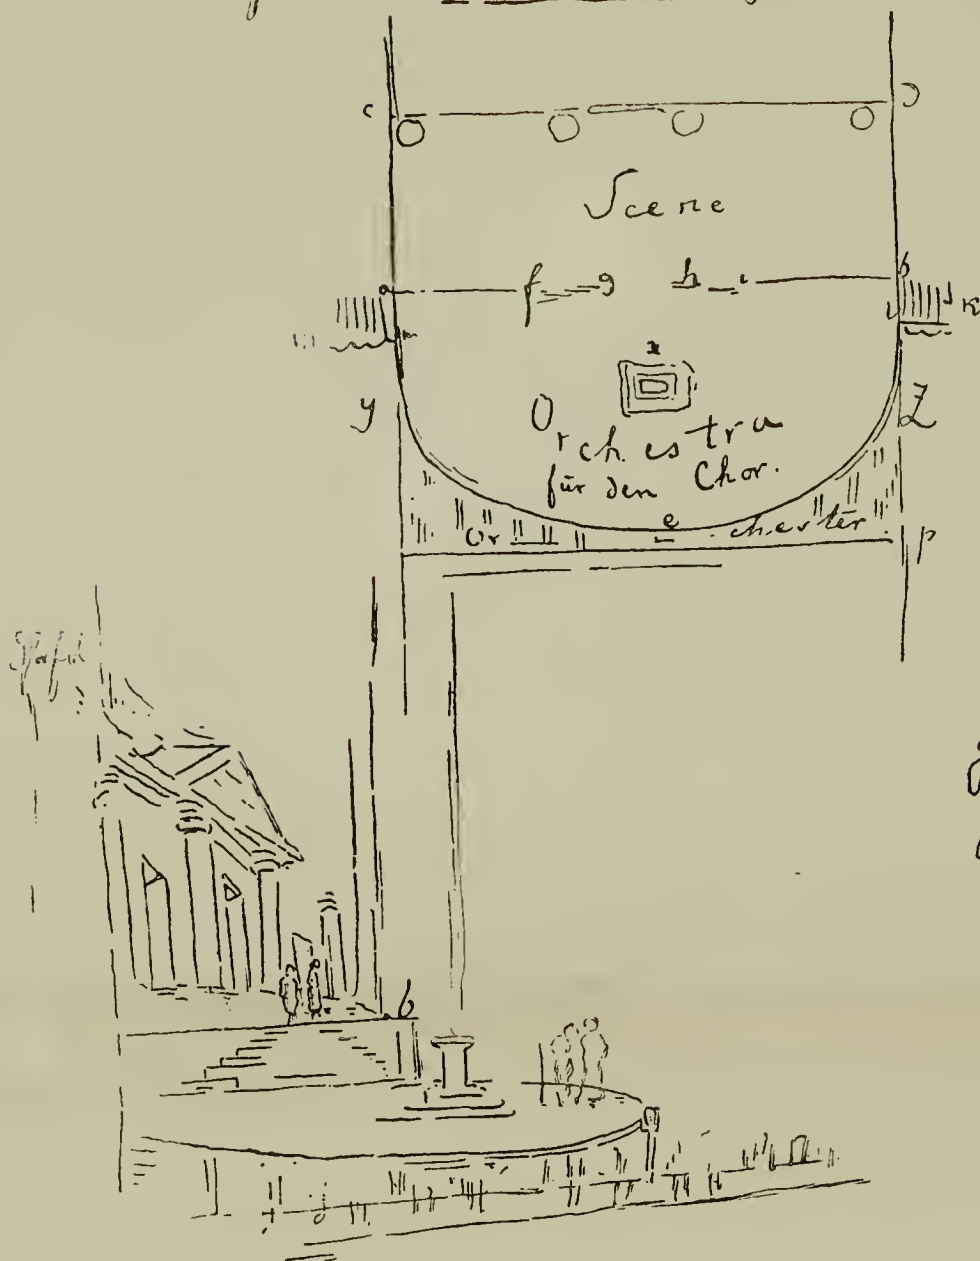 c
Scene
a f g h i b
k
m
x
y Z
Orchestra
für den Chor.
e
Or chester
p
b